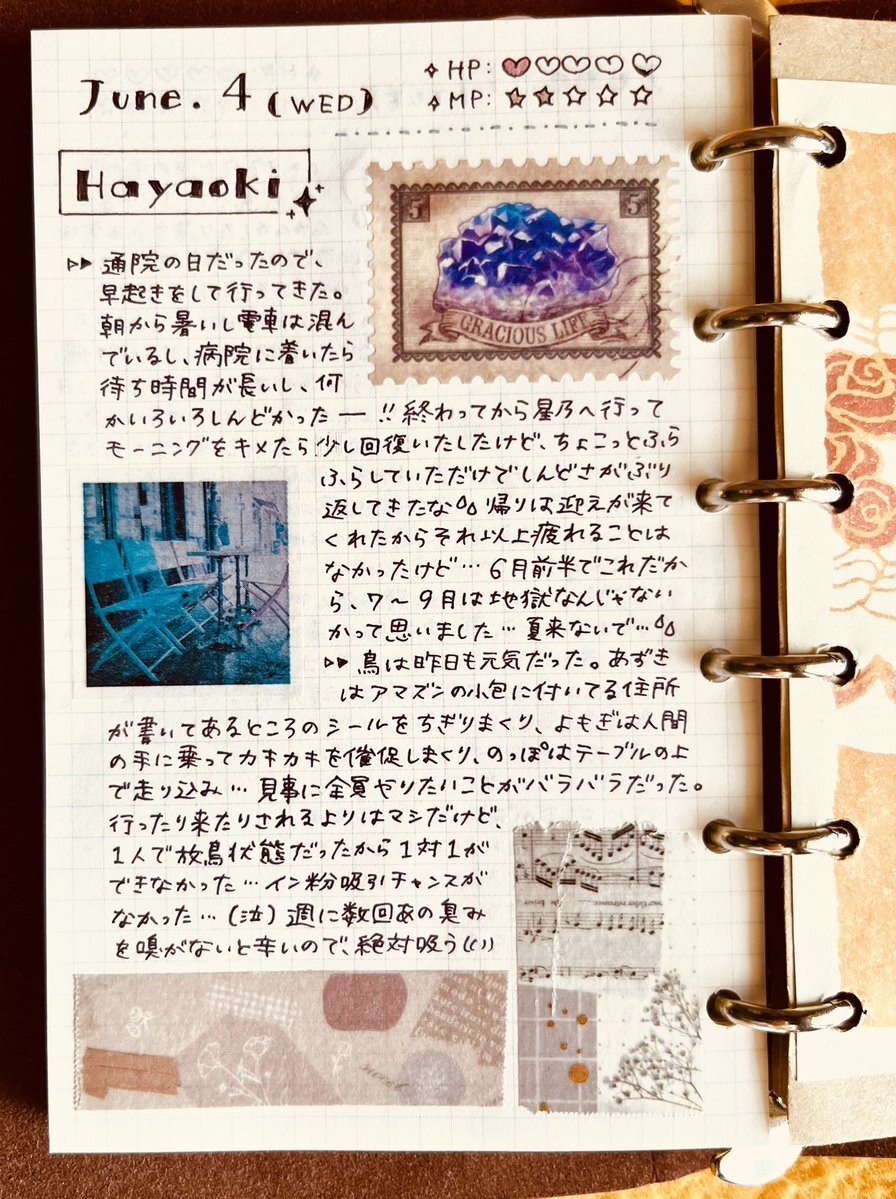 June. 4 (WED)
HP: ♥♡♡♡♡
MP: ★★☆☆☆
Hayaoki
5 5
GRACIOUS LIFE
▷▷ 通院の日だったので、
早起きをして行ってきた。
朝から暑いし電車は混ん
でいるし、病院に着いたら
待ち時間が長いし、何
かいろいろしんどかったー!! 終わってから星乃へ行って
モーニングをキメたら少し回復いたしたけど、ちょこっとふら
ふらしていただけでしんどさがぶり
返してきたな 帰りは迎えが来て
くれたからそれ以上疲れることは
なかったけど… 6月前半でこれだか
ら、7〜9月は地獄なんじゃない
かって思いました…夏来ないで…
▷▷ 鳥は昨日も元気だった。あずき
はアマズンの小包に付いてる住所
が書いてあるところのシールをちぎりまくり、よもぎは人間
の手に乗ってカキカキを催促しまくり、のっぽはテーブルの上
で走り込み… 見事に全員やりたいことがバラバラだった。
行ったり来たりされるよりはマシだけど、
1人で放鳥状態だったから1対1が
できなかった…イン粉吸引チャンスが
なかった…(泣) 週に数回あの臭み
を嗅がないと辛いので、絶対吸う